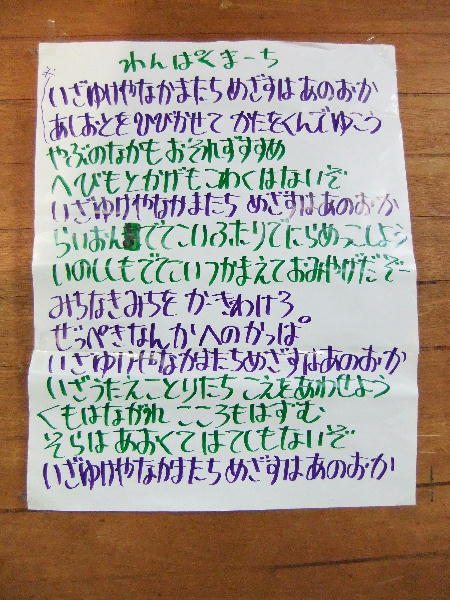 わんぱくまーち
いざゆけやなかまたち めざすは あのおか
あしおとをひびかせて かたをくんでゆこう
やぶのなかも おそれずすすめ
へびもとかげもこわくはないぞ
いざゆけやなかまたち めざすはあのおか
らいおんでてこいふたりでにらめっこしよう
いのししもでてこいつかまえておみやげだぞー
みちなきみちを かきわけろ
ぜっぺきなんかへのかっぱ。
いざゆけやなかまたちめざすはあのおか
いざうたえことりたち こえをあわせよう
くもはながれ こころもはずむ
そらは あおくて はてしもないぞ
いざゆけやなかまたち めざすは あのおか